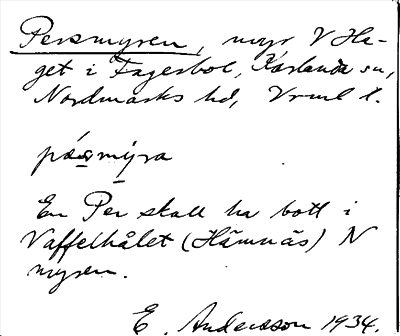 Persmyren, myr V Ha-
get i Fagerbol, Karlanda sn,
Nordmarks hd, Vrml l.
pæ̀smýra
En Per skall ha bott i
Vaffelhålet (Hämnäs) N
myren.
E. Andersson 1934.